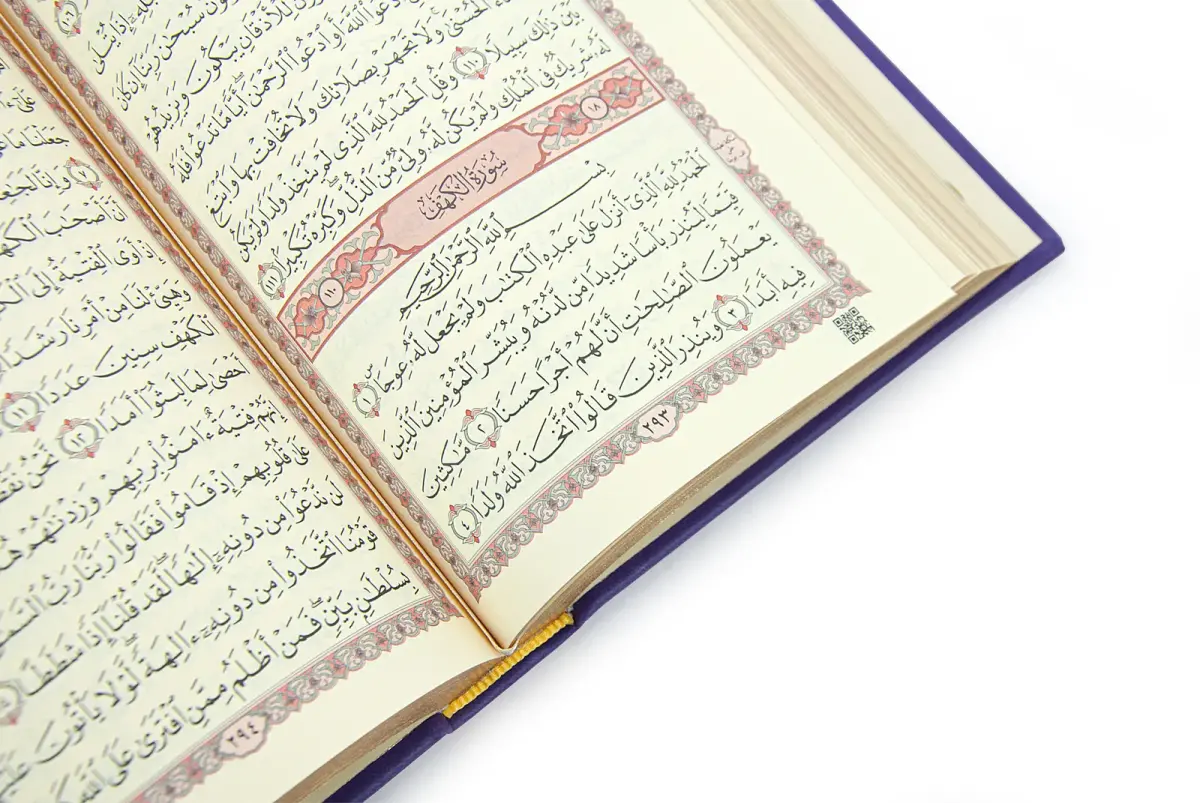 سُبْحَٰنَ رَبِّنَآ إِن كَانَ
لِلْأَذْقَانِ يَبْكُونَ وَيَزِيدُهُمْ
ٱدْعُوا۟ ٱللَّهَ أَوِ ٱدْعُوا۟ ٱلرَّحْمَٰنَ أَيًّا مَّا تَدْعُوا۟ فَلَهُ
ٱلْحُسْنَىٰ وَلَا تَجْهَرْ بِصَلَاتِكَ وَلَا تُخَافِتْ بِهَا وَٱبْتَغِ
بَيْنَ ذَٰلِكَ سَبِيلًا ١١٠ وَقُلِ ٱلْحَمْدُ لِلَّهِ ٱلَّذِى لَمْ يَتَّخِذْ وَلَدًا وَلَمْ يَكُن
لَّهُۥ شَرِيكٌ فِى ٱلْمُلْكِ وَلَمْ يَكُن لَّهُۥ وَلِىٌّ مِّنَ ٱلذُّلِّ وَكَبِّرْهُ تَكْبِيرًۢا ١١١
١٨ سُورَةُ الكَهْفِ ١١٠
بِسْمِ ٱللَّهِ ٱلرَّحْمَٰنِ ٱلرَّحِيمِ
ٱلْحَمْدُ لِلَّهِ ٱلَّذِىٓ أَنزَلَ عَلَىٰ عَبْدِهِ ٱلْكِتَٰبَ وَلَمْ يَجْعَل لَّهُۥ عِوَجَاۜ ١
قَيِّمًا لِّيُنذِرَ بَأْسًا شَدِيدًا مِّن لَّدُنْهُ وَيُبَشِّرَ ٱلْمُؤْمِنِينَ ٱلَّذِينَ
يَعْمَلُونَ ٱلصَّٰلِحَٰتِ أَنَّ لَهُمْ أَجْرًا حَسَنًا ٢ مَّٰكِثِينَ
فِيهِ أَبَدًا ٣ وَيُنذِرَ ٱلَّذِينَ قَالُوا۟ ٱتَّخَذَ ٱللَّهُ وَلَدًا ٤
٢٩٣
جَعَلْنَا مَا
٧ وَإِنَّا لَجَٰعِلُونَ
أَنَّ أَصْحَٰبَ ٱلْكَهْفِ
إِذْ أَوَى ٱلْفِتْيَةُ إِلَى ٱلْكَهْفِ
وَهَيِّئْ لَنَا مِنْ أَمْرِنَا رَشَدًا
ٱلْكَهْفِ سِنِينَ عَدَدًا ١١
أَحْصَىٰ لِمَا لَبِثُوٓا۟ أَمَدًا ١٢ نَّحْنُ نَقُصُّ
إِنَّهُمْ فِتْيَةٌ ءَامَنُوا۟ بِرَبِّهِمْ وَزِدْنَٰهُمْ هُدًى
عَلَىٰ قُلُوبِهِمْ إِذْ قَامُوا۟ فَقَالُوا۟ رَبُّنَا رَبُّ ٱلسَّمَٰوَٰتِ
لَن نَّدْعُوَا۟ مِن دُونِهِۦٓ إِلَٰهًا لَّقَدْ قُلْنَآ إِذًا شَطَطًا
قَوْمُنَا ٱتَّخَذُوا۟ مِن دُونِهِۦٓ ءَالِهَةً لَّوْلَا يَأْتُونَ عَلَيْهِم
بِسُلْطَٰنٍۭ بَيِّنٍ فَمَنْ أَظْلَمُ مِمَّنِ ٱفْتَرَىٰ عَلَى ٱللَّهِ
٢٩٤